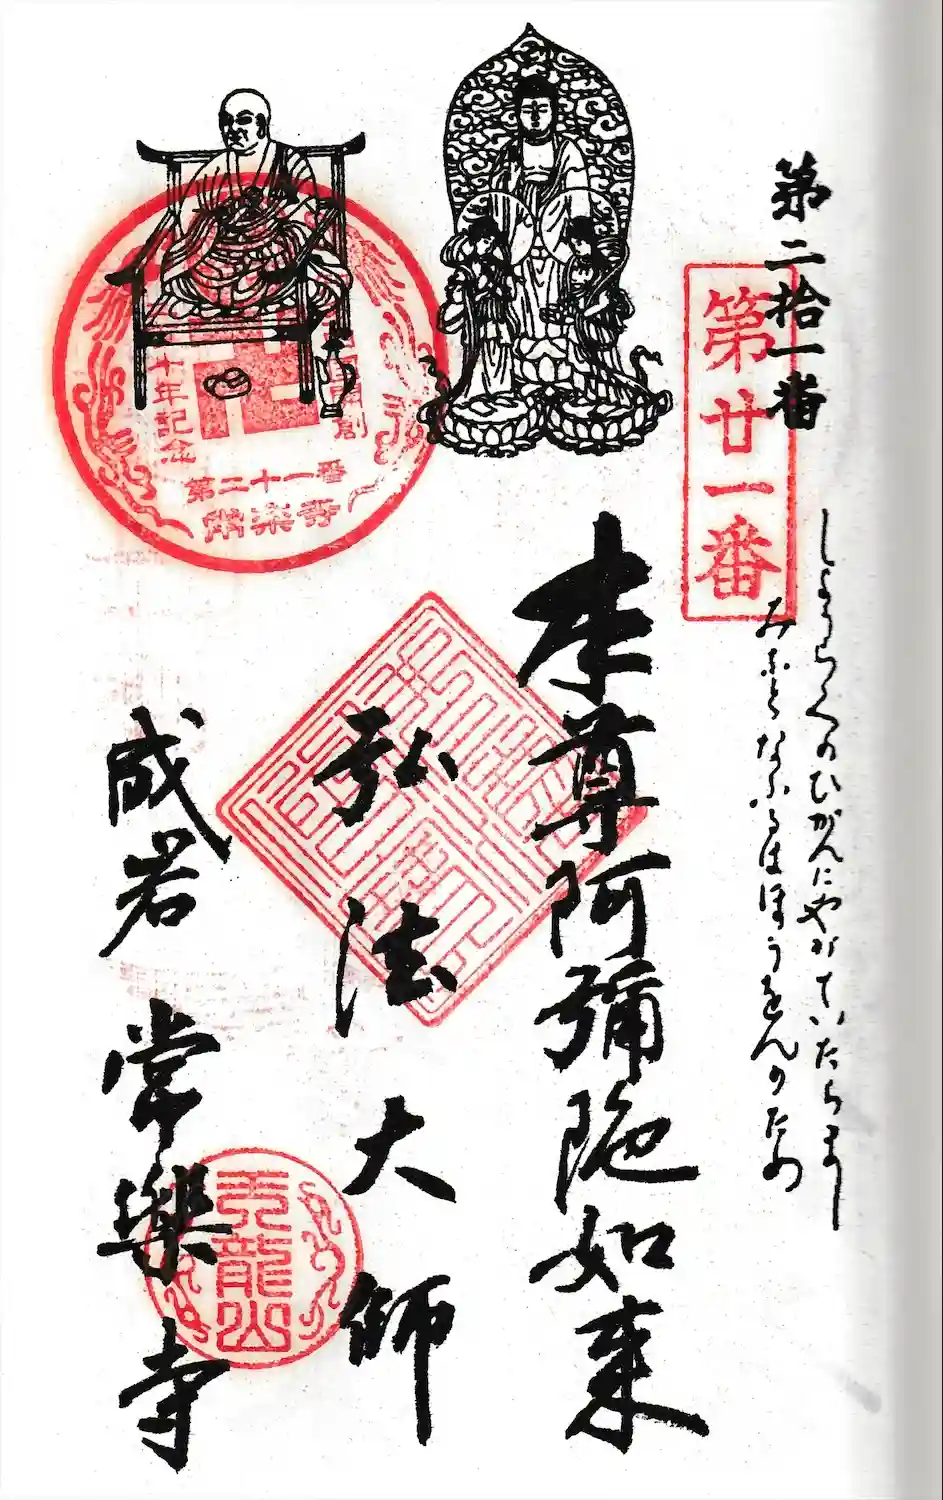 第二拾一番
第廿一番
しょうらくのひがんにやがていたらまし
みなとなふるはほうをんのため
本尊阿彌陀如来
弘法大師
成若 常樂寺
十年記念
第二十一番
常楽寺
天龍山